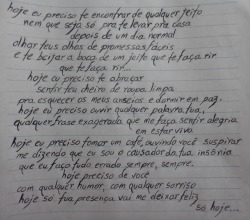 hoje eu preciso te encontrar de qualquer jeito
nem que seja só pra te levar pra casa
depois de um dia normal
olhar teus olhos de promessas fáceis
e te beijar a boca de um jeito que te faça rir
que te faça rir...
hoje eu preciso te abraçar
sentir teu cheiro de roupa limpa
pra esquecer os meus anseios e dormir em paz.
hoje eu preciso ouvir qualquer palavra tua,
qualquer frase exagerada que me faça sentir alegria
em estar vivo.
hoje eu preciso tomar um café, ouvindo você suspirar
me dizendo que eu sou o causador da tua insônia
que eu faço tudo errado sempre, sempre.
hoje preciso de você
com qualquer humor, com qualquer sorriso
hoje só tua presença vai me deixar feliz
só hoje...